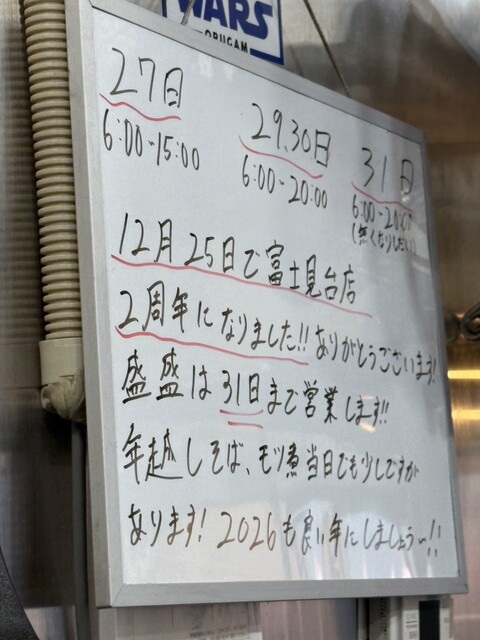 WARS
27日
6:00-15:00
29.30日
6:00-20:00
31日
6:00-20:00
(無くなりしだい)
12月25日で富士見台店
2周年になりました!!ありがとうございます!
盛盛は31日まで営業します!!
年越しそば、モツ煮当日でも少しですが
あります!2026も良い年にしましょう〜!!